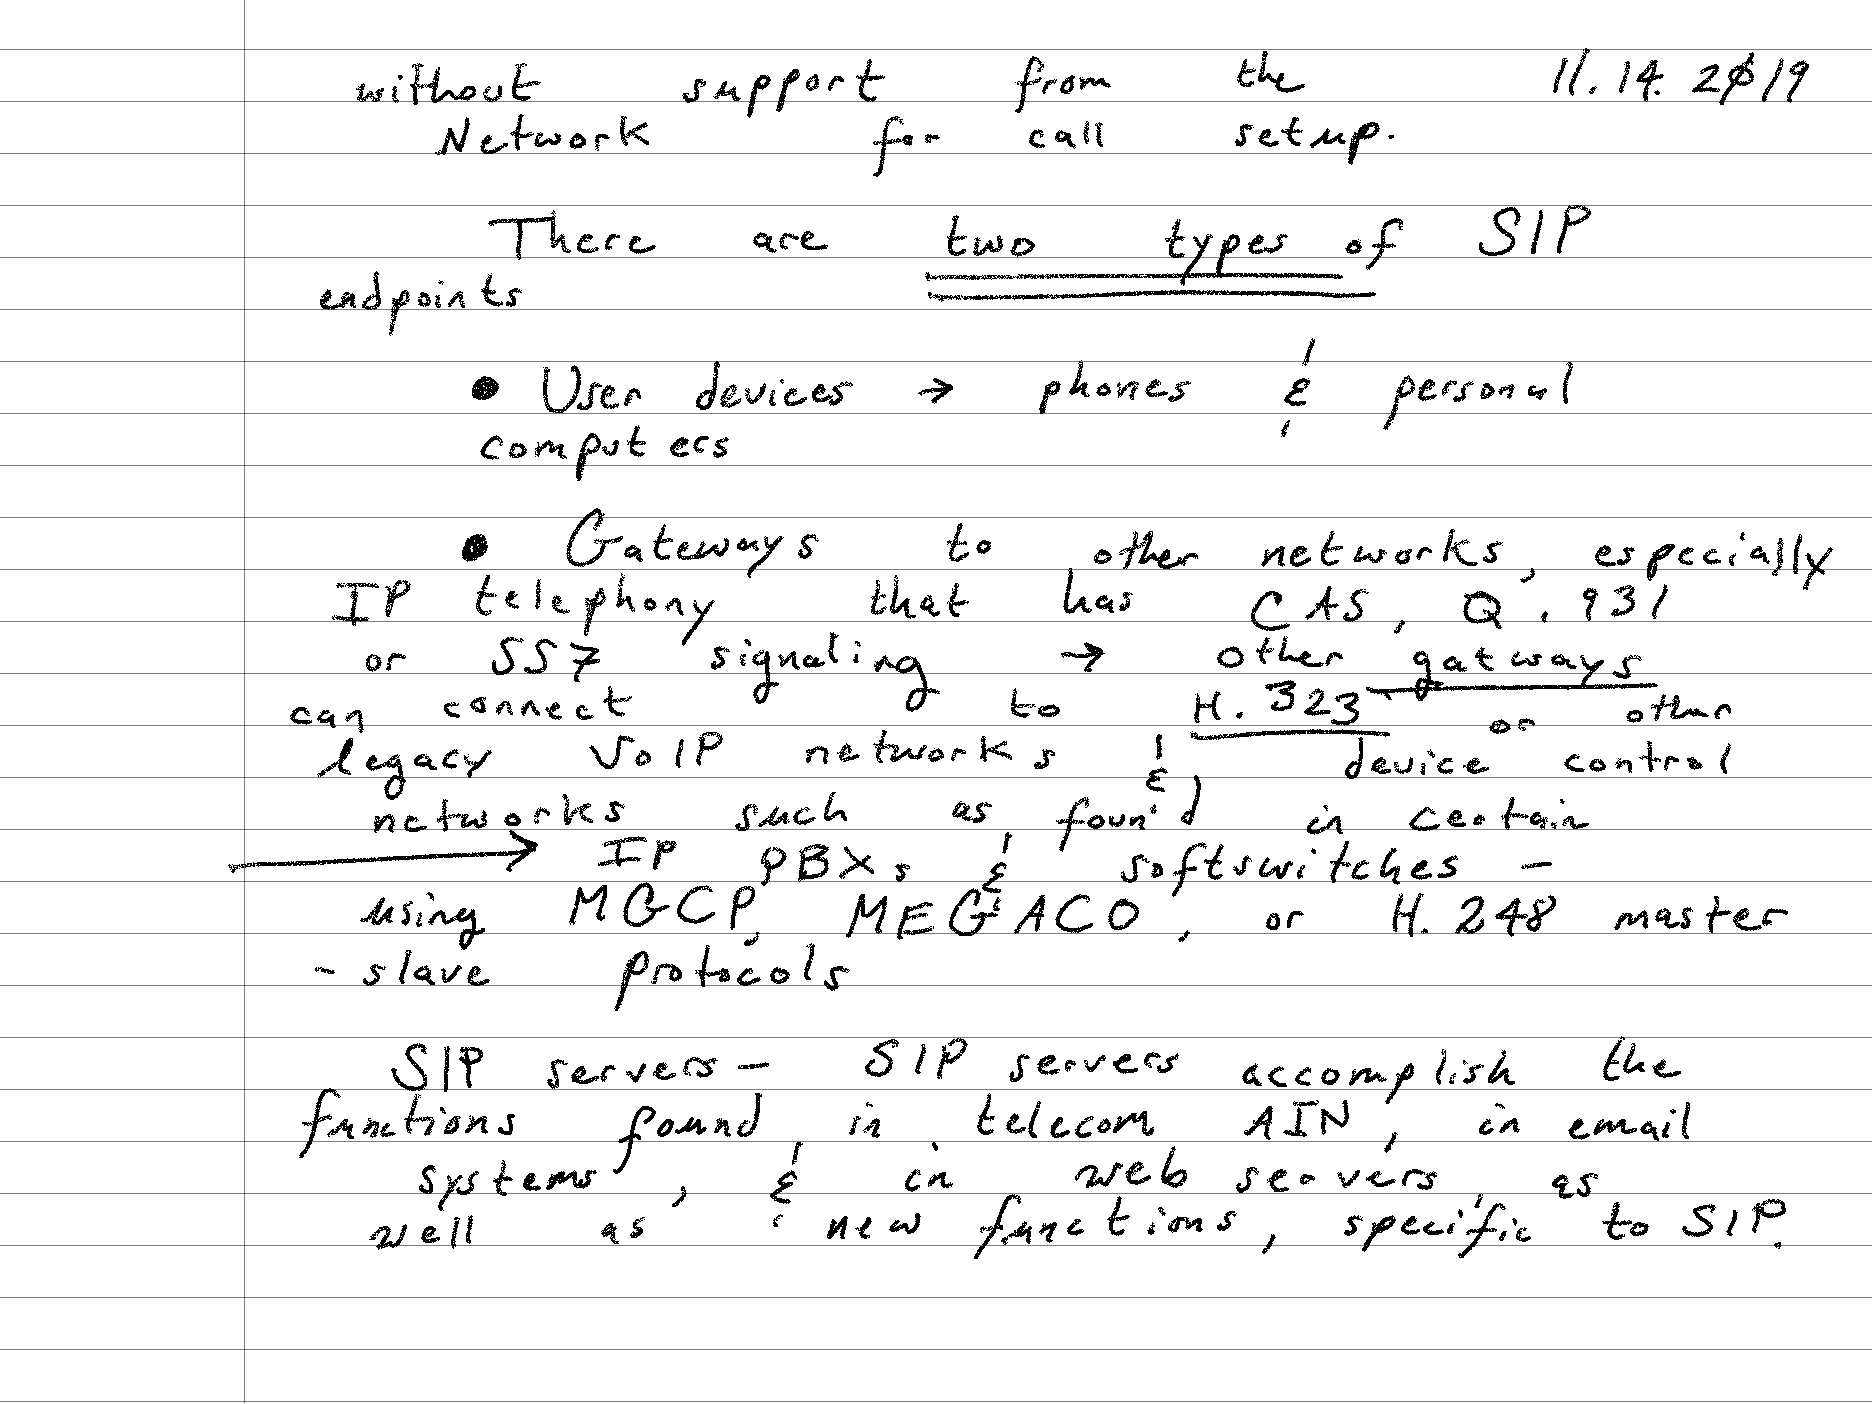 without support from the 11.14.2019
Network for call setup.
There are two types of SIP
endpoints
• User devices → phones & personal
computers
• Gateways to other networks, especially
IP telephony that has CAS, Q.931
or SS7 signaling → other gatways
can connect to H.323 or other
legacy VoIP networks & device control
networks such as found in certain
→ IP PBXs & softswitches -
using MGCP, MEGACO, or H.248 master
- slave protocols
SIP servers - SIP servers accomplish the
functions found in telecom AIN, in email
systems, & in web servers, as
well as new functions, specific to SIP.